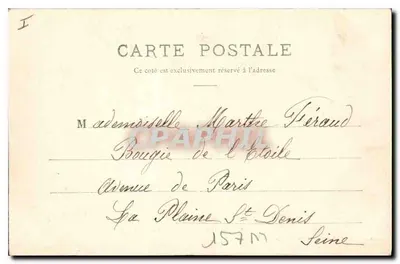 I
CARTE POSTALE
Ce coté est exclusivement réservé à l'adresse
Mademoiselle Marthe Féraud
Bougie de l'Etoile
Avenue de Paris
La Plaine St. Denis
157M
Seine